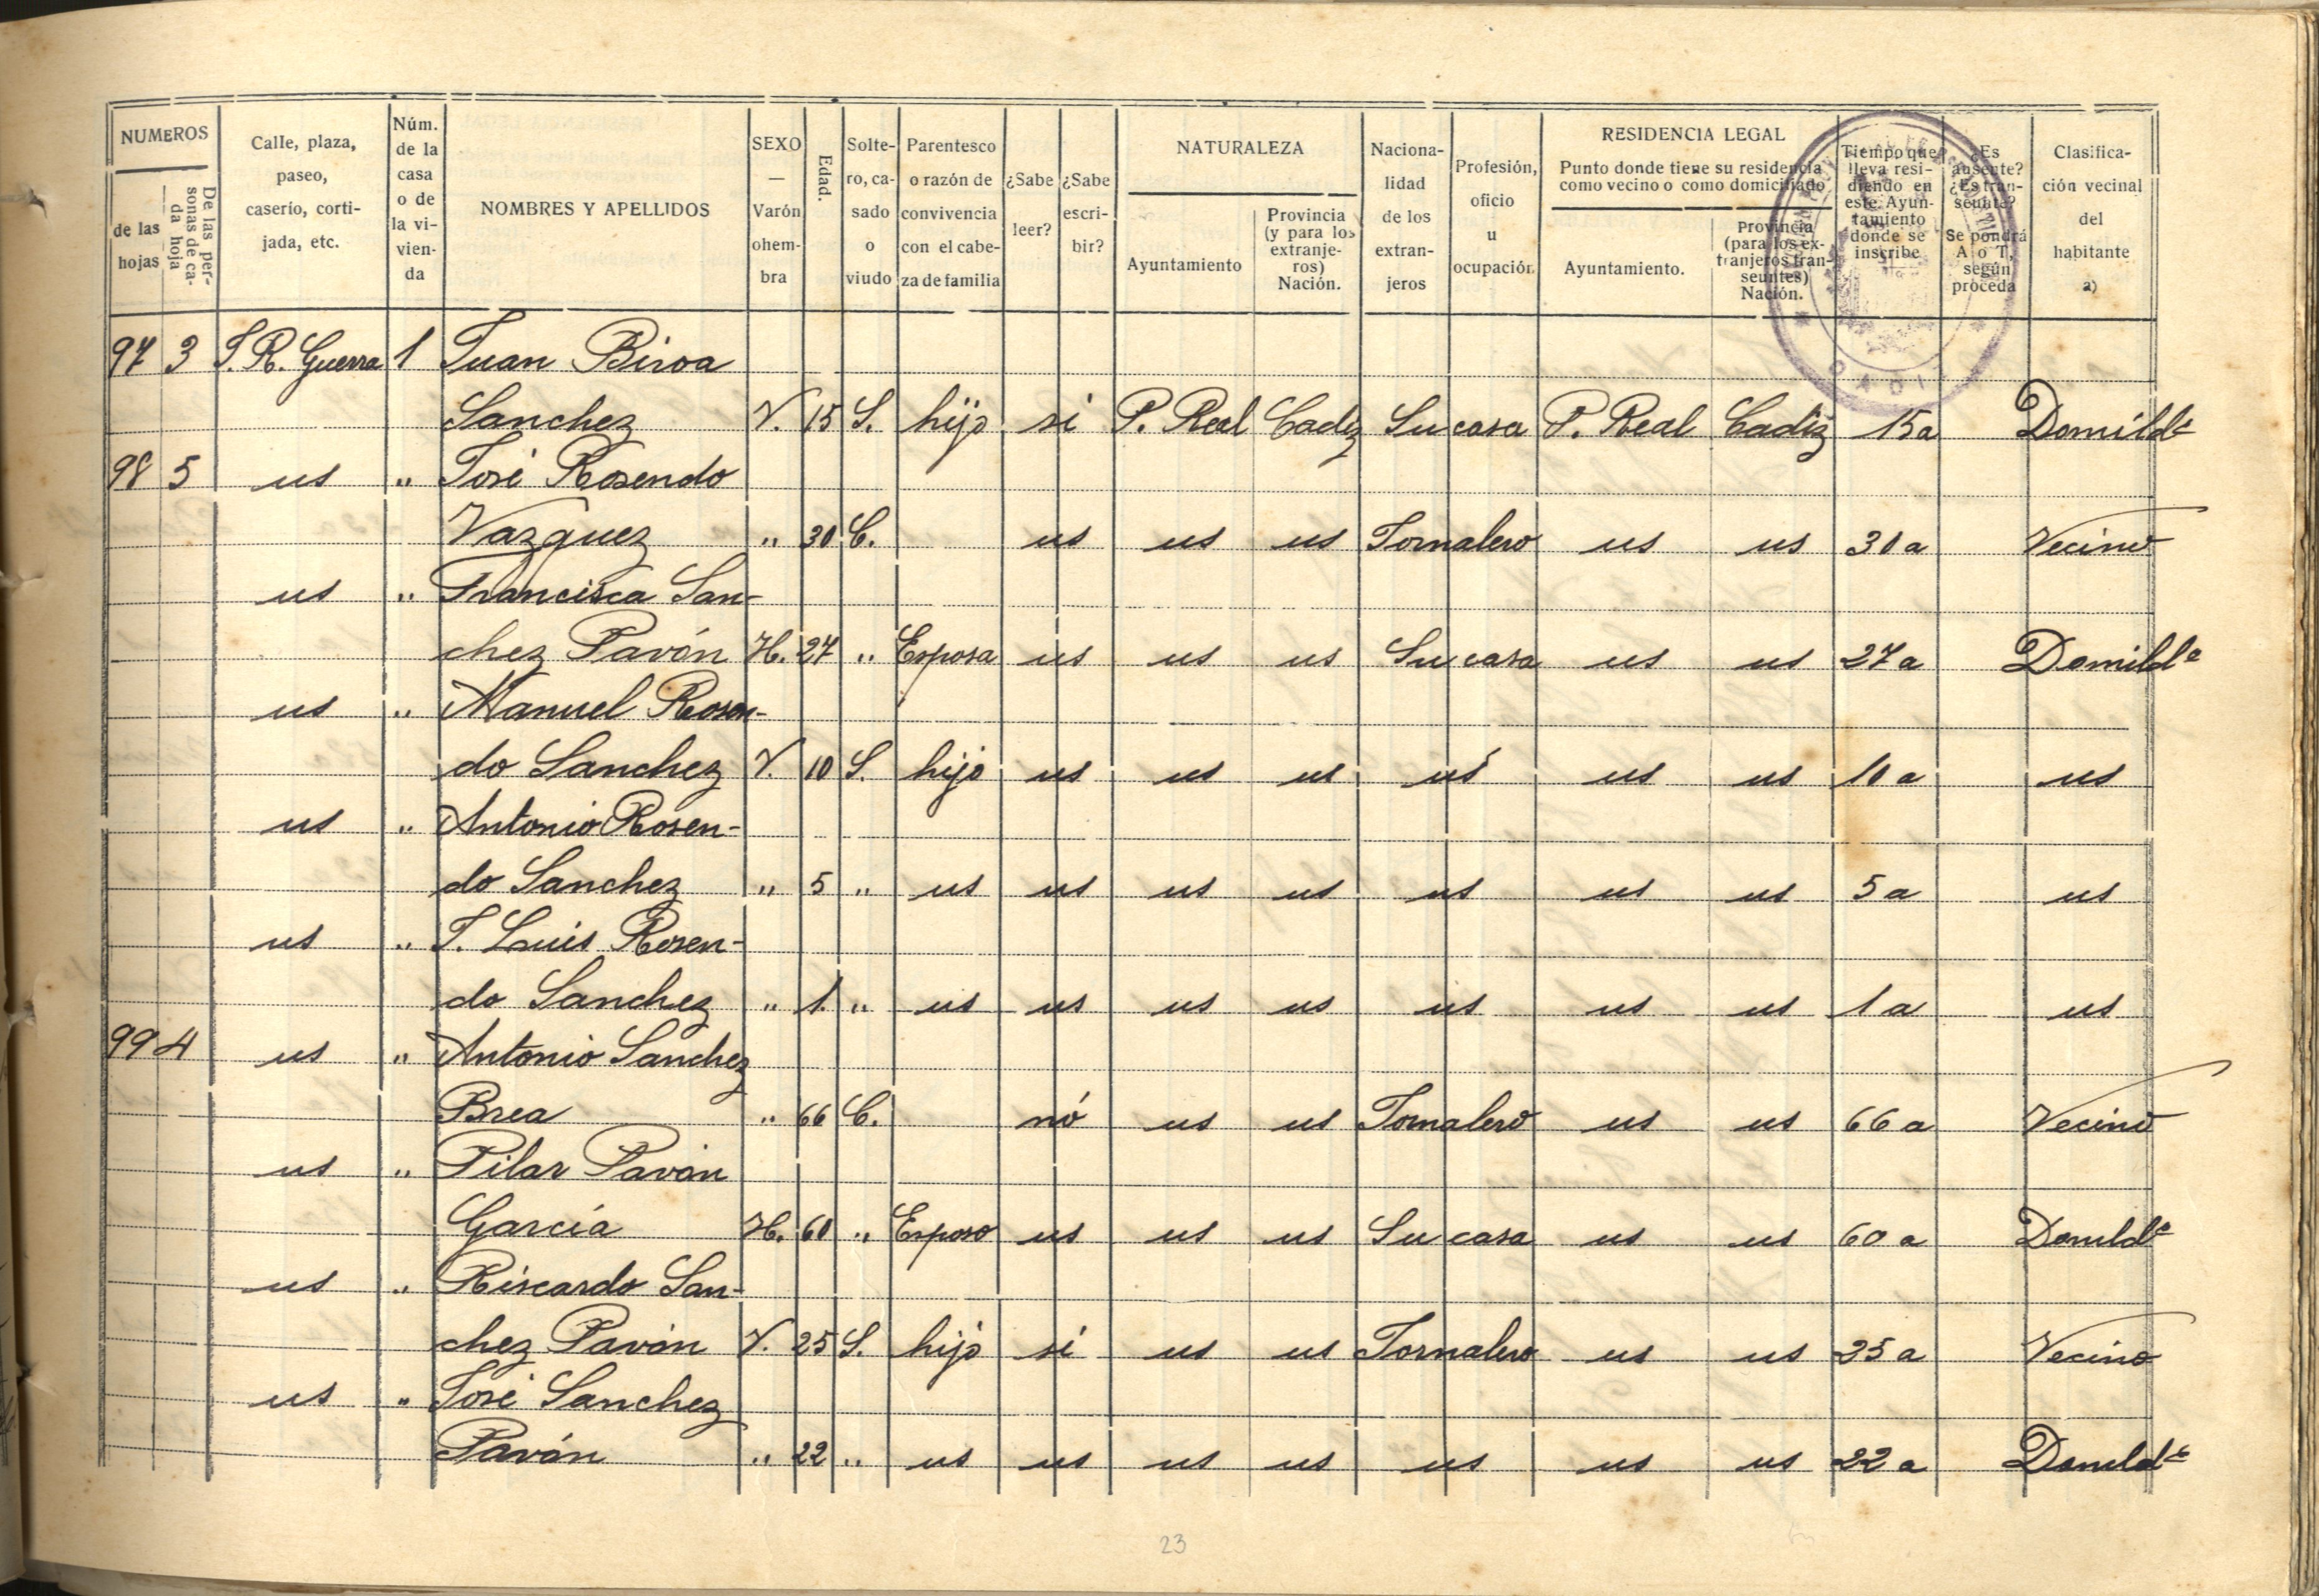 NUMEROS
de las hojas
De las personas de cada hoja
Calle, plaza, paseo, caserío, cortijada, etc.
Núm. de la casa o de la vivienda
NOMBRES Y APELLIDOS
SEXO — Varón ohembra
Edad.
Soltero, casado o viudo
Parentesco o razón de convivencia con el cabeza de familia
¿Sabe leer?
¿Sabe escribir?
NATURALEZA
Ayuntamiento
Provincia (y para los extranjeros) Nación.
Nacionalidad de los extranjeros
Profesión, oficio u ocupación
RESIDENCIA LEGAL
Punto donde tiene su residencia como vecino o como domiciliado
Ayuntamiento.
Provincia (para los extranjeros transeuntes) Nación.
Tiempo que lleva residiendo en este Ayuntamiento donde se inscribe
¿Es ausente? ¿Es transeunte? Se pondrá A o T, según proceda
Clasificación vecinal del habitante a)
97 3 J. R. Guerra 1 Juan Biroa
Sanchez V. 15 S. hijo si P. Real Cadiz Su casa P. Real Cadiz 15 a Domildº
98 5 us " José Rosendo
Vazquez " 30 C. us us us Jornalero us us 30 a Vecino
us " Francisca San-
chez Pavón H. 27 " Esposa us us us Su casa us us 27 a Domildª
us " Manuel Rosen-
do Sanchez V. 10 S. hijo us us us us us us 10 a us
us " Antonio Rosen-
do Sanchez " 5 " us us us us us us us 5 a us
us " J. Luis Rosen-
do Sanchez " 1. " us us us us us us us 1 a us
99 4 us " Antonio Sanchez
Brea " 66 C. nó us us Jornalero us us 66 a Vecino
us " Pilar Pavón
García H. 60 " Esposo us us us Su casa us us 60 a Domildº
us " Riscardo San-
chez Pavón V. 25 S. hijo si us us Jornalero us us 25 a Vecino
us " José Sanchez
Pavón " 22 " us us us us us us us 22 a Domildº
CADIZ
23